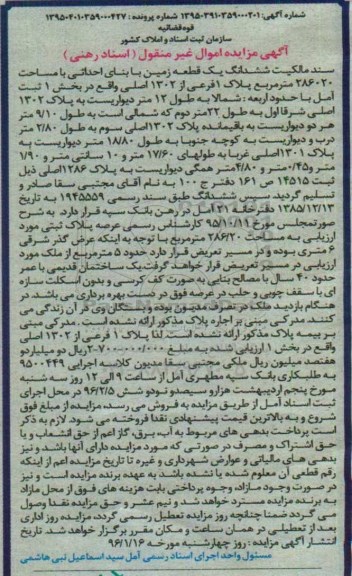 شماره آگهی: ۱۳۹۵۰۳۹۱۰۳۵۹۰۰۰۲۰۱ شماره پرونده: ۱۳۹۵۰۴۰۱۰۳۵۹۰۰۰۴۲۷
قوه قضائیه
سازمان ثبت اسناد و املاک کشور
آگهی مزایده اموال غیر منقول ( اسناد رهنی )
سند مالکیت ششدانگ یک قطعه زمین با بنای احداثی با مساحت
۲۸۶٫۲۰ مترمربع پلاک ۱ فرعی از ۱۳۰۲ اصلی واقع در بخش ۱ ثبت
آمل با حدود اربعه : شمالا به طول ۱۲ متر دیواریست به پلاک ۱۳۰۲
اصلی شرقا اول به طول ۲۲ متر دوم که شمالی است به طول ۹/۱۰ متر
هر دو دیواریست به باقیمانده پلاک ۱۳۰۲ اصلی سوم به طول ۲/۸۰ متر
درب و دیواریست به کوچه جنوبا به طول ۱۸/۸۰ متر دیواریست به
پلاک ۱۳۰۱ اصلی غربا به طولهای ۱۷/۶۰ متر و ۱۰ سانتی متر و ۱/۹۰
متر و ۰/۴۵ متر و ۴/۸۰ متر همگی دیواریست به پلاک ۱۲۸۶ اصلی ذیل
ثبت ۱۴۵۱۵ ص ۱۶۱ دفتر ج ۱۰۰ به نام آقای مجتبی سقا صادر و
تسلیم گردید سپس ششدانگ طبق سند رسمی ۱۹۴۵۵۹ به تاریخ
۱۳۸۵/۱۲/۱۳ دفترخانه ۲۱ آمل در رهن بانک سپه قرار دارد. به شرح
صورتمجلس مورخ ۹۵/۱۰/۱۱ کارشناس رسمی عرصه پلاک ثبتی مورد
ارزیابی به مساحت ۲۸۶/۲۰ مترمربع با توجه به اینکه عرض گذر شرقی
۶ متری بوده و در مسیر تعریض قرار دارد حدود ۵ مترمربع از ملک مورد
ارزیابی در مسیر تعریض قرار خواهد گرفت یک ساختمان قدیمی با عمر
حدود ۴۰ سال با مصالح بنایی به صورت کف کرسی و بدون اسکلت سازه
ای با سقف چوبی و حلب در عرصه فوق در دست بهره برداری می باشد. در
هنگام بازدید ملک در تصرف مدیون بوده و بستگان وی در آن زندگی می
کنند. مدرکی مبنی بر اجاره پلاک مذکور ارائه نشده است . مدرکی مبنی
بر بیمه پلاک مذکور ارائه نشده است. لذا پلاک ۱ فرعی از ۱۳۰۲ اصلی
واقع در بخش ۱ ارزیابی شده به مبلغ ۲/۷۰۰/۰۰۰/۰۰۰ ریال دو میلیارد و
هفتصد میلیون ریال ملکی مجتبی سقا مدیون کلاسه اجرایی ۹۵۰۰۴۴۹
به طلبکاری بانک سپه مطهری آمل از ساعت ۹ الی ۱۲ روز سه شنبه
مورخ پنجم اردیبهشت هزار و سیصد و نود و شش ۹۶/۲/۵ در محل اجرای
ثبت اسناد آمل از طریق مزایده به فروش می رسد، مزایده از مبلغ فوق
شروع و به بالاترین قیمت پیشنهادی نقدا فروخته می شود. لازم به ذکر
است پرداخت بدهی های مربوط به آب، برق، گاز اعم از حق انشعاب و یا
حق اشتراک و مصرف در صورتی که مورد مزایده دارای آنها باشد و نیز
بدهی های مالیاتی و عوارض شهرداری و غیره تا تاریخ مزایده اعم از اینکه
رقم قطعی آن معلوم شده یا نشده باشد به عهده برنده مزایده است و نیز
در صورت وجود مازاد، وجوه پرداختی بابت هزینه های فوق از محل مازاد
به برنده مزایده مسترد خواهد شد و نیم عشر و حق مزایده نقدا وصول
می گردد ضمنا چنانچه روز مزایده تعطیل رسمی گردد، مزایده روز اداری
بعد از تعطیلی در همان ساعت و مکان مقرر برگزار خواهد شد. تاریخ
انتشار آگهی مزایده : روز چهارشنبه مورخه ۹۶/۱/۱۶
مسئول واحد اجرای اسناد رسمی آمل سید اسماعیل نبی هاشمی